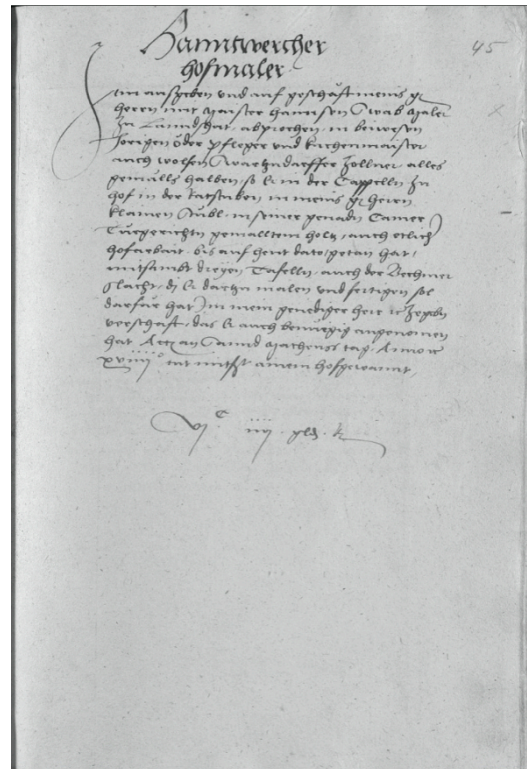 Hanntwercher
hofmaler
45
Im aufgeben und auf geschäft meins g
herren mit maister Hannsen Wab maler
zu Lanndshut abprochen, in beywesen
Jorigen Öder pfleger und kirchenmaister
auch wolfen zollner alles
gemälls halben so Er in der Cappelln zu
hof in der Ratstuben in meins g heren
klainen Stübl in seiner genadn Camer
Tuergerichtn gemalltem holtz, auch etlich
hofarbait bis auf heut dato getan hat,
mitsambt dreyen Tafelln, auch der Behmer
slacht, dj Er dartzu malen und fertigen sol
darfür hat im mein genediger herr
verschaft, das Er auch benuegig angenomen
hat Actum an Sannd tag Anno
xviiii° mit ainem hofgewannt,
vj C iiij gld